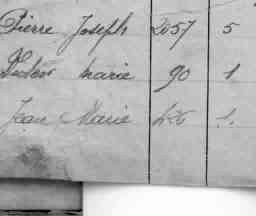 Pierre Joseph 2057 5
marie 90 1
Jean Marie 1.